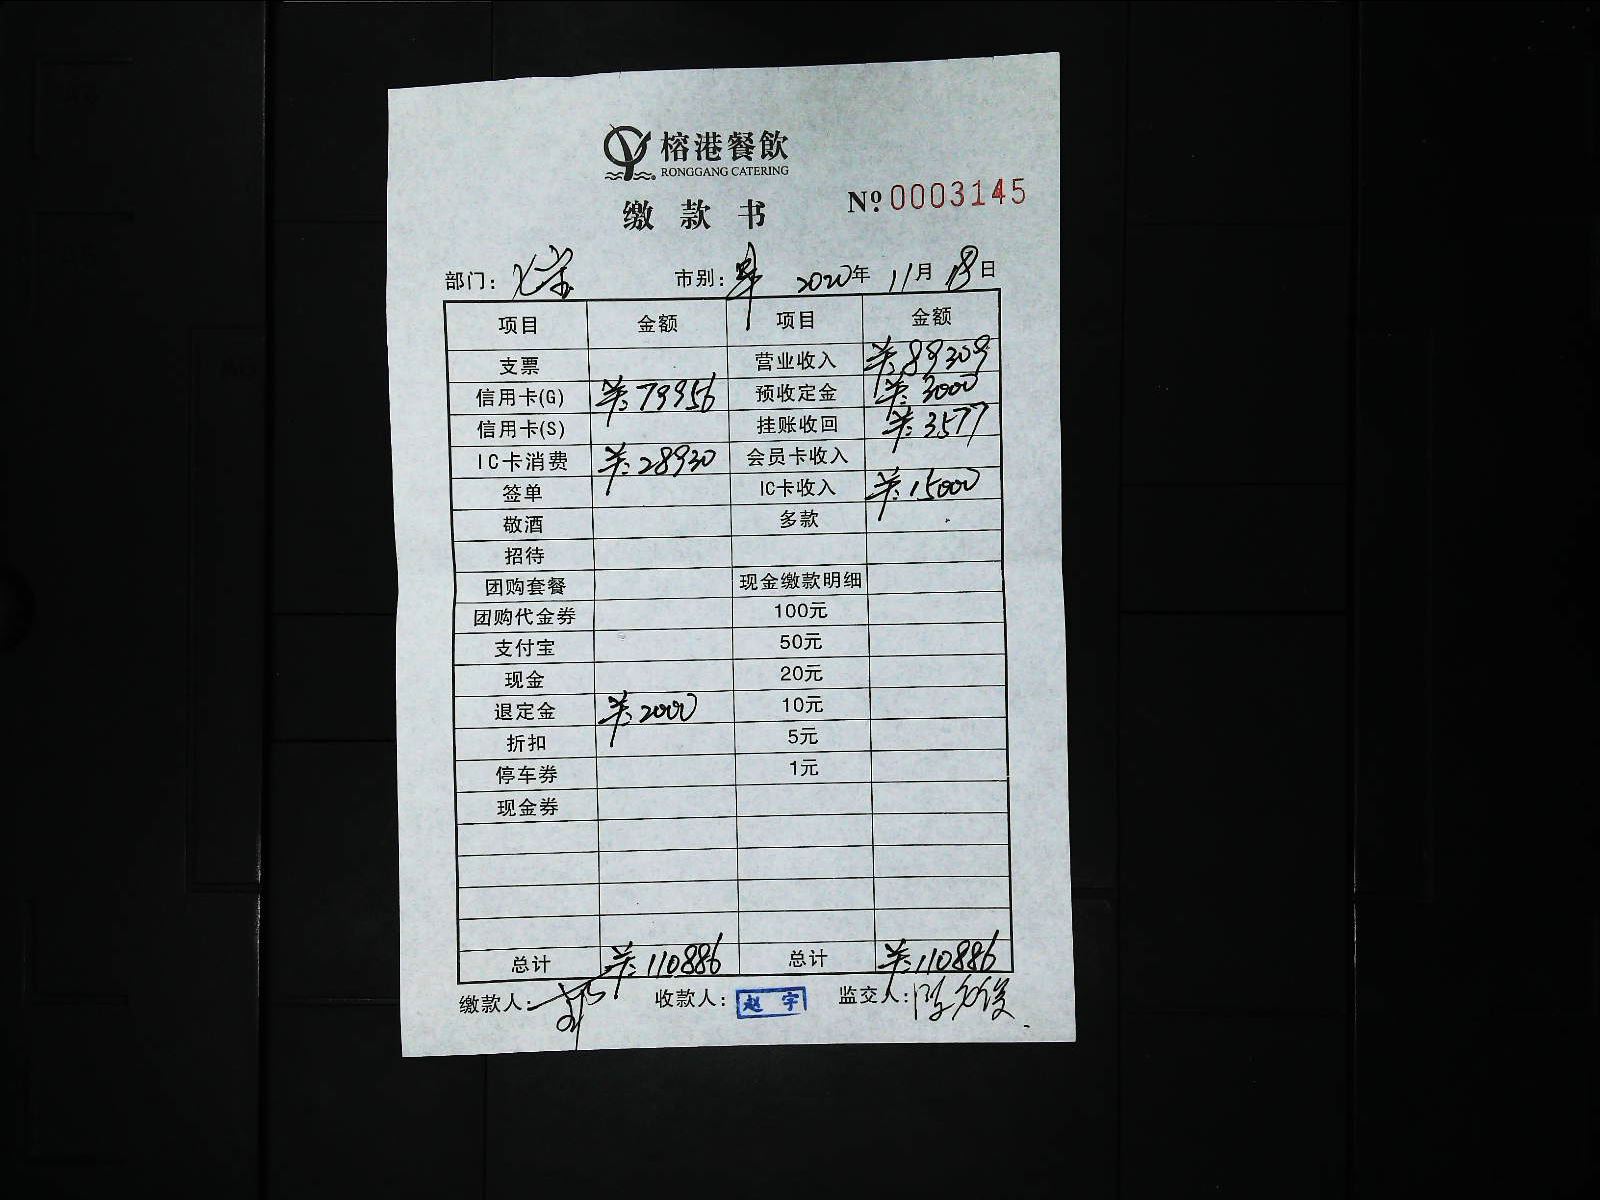 榕港餐飲
RONGGANG CATERING
缴款书 № 0003145
部门: 市别: 2020年 11月 18日
项目 金额 项目 金额
支票 营业收入 ¥:89309
信用卡(G) ¥:79956 预收定金 ¥:3000
信用卡(S) 挂账收回 ¥:3577
IC卡消费 ¥:28930 会员卡收入
签单 IC卡收入 ¥:15000
敬酒 多款
招待
团购套餐 现金缴款明细
团购代金券 100元
支付宝 50元
现金 20元
退定金 ¥:2000 10元
折扣 5元
停车券 1元
现金券
总计 ¥:110886 总计 ¥:110886
缴款人: 收款人: 赵宇 监交人: